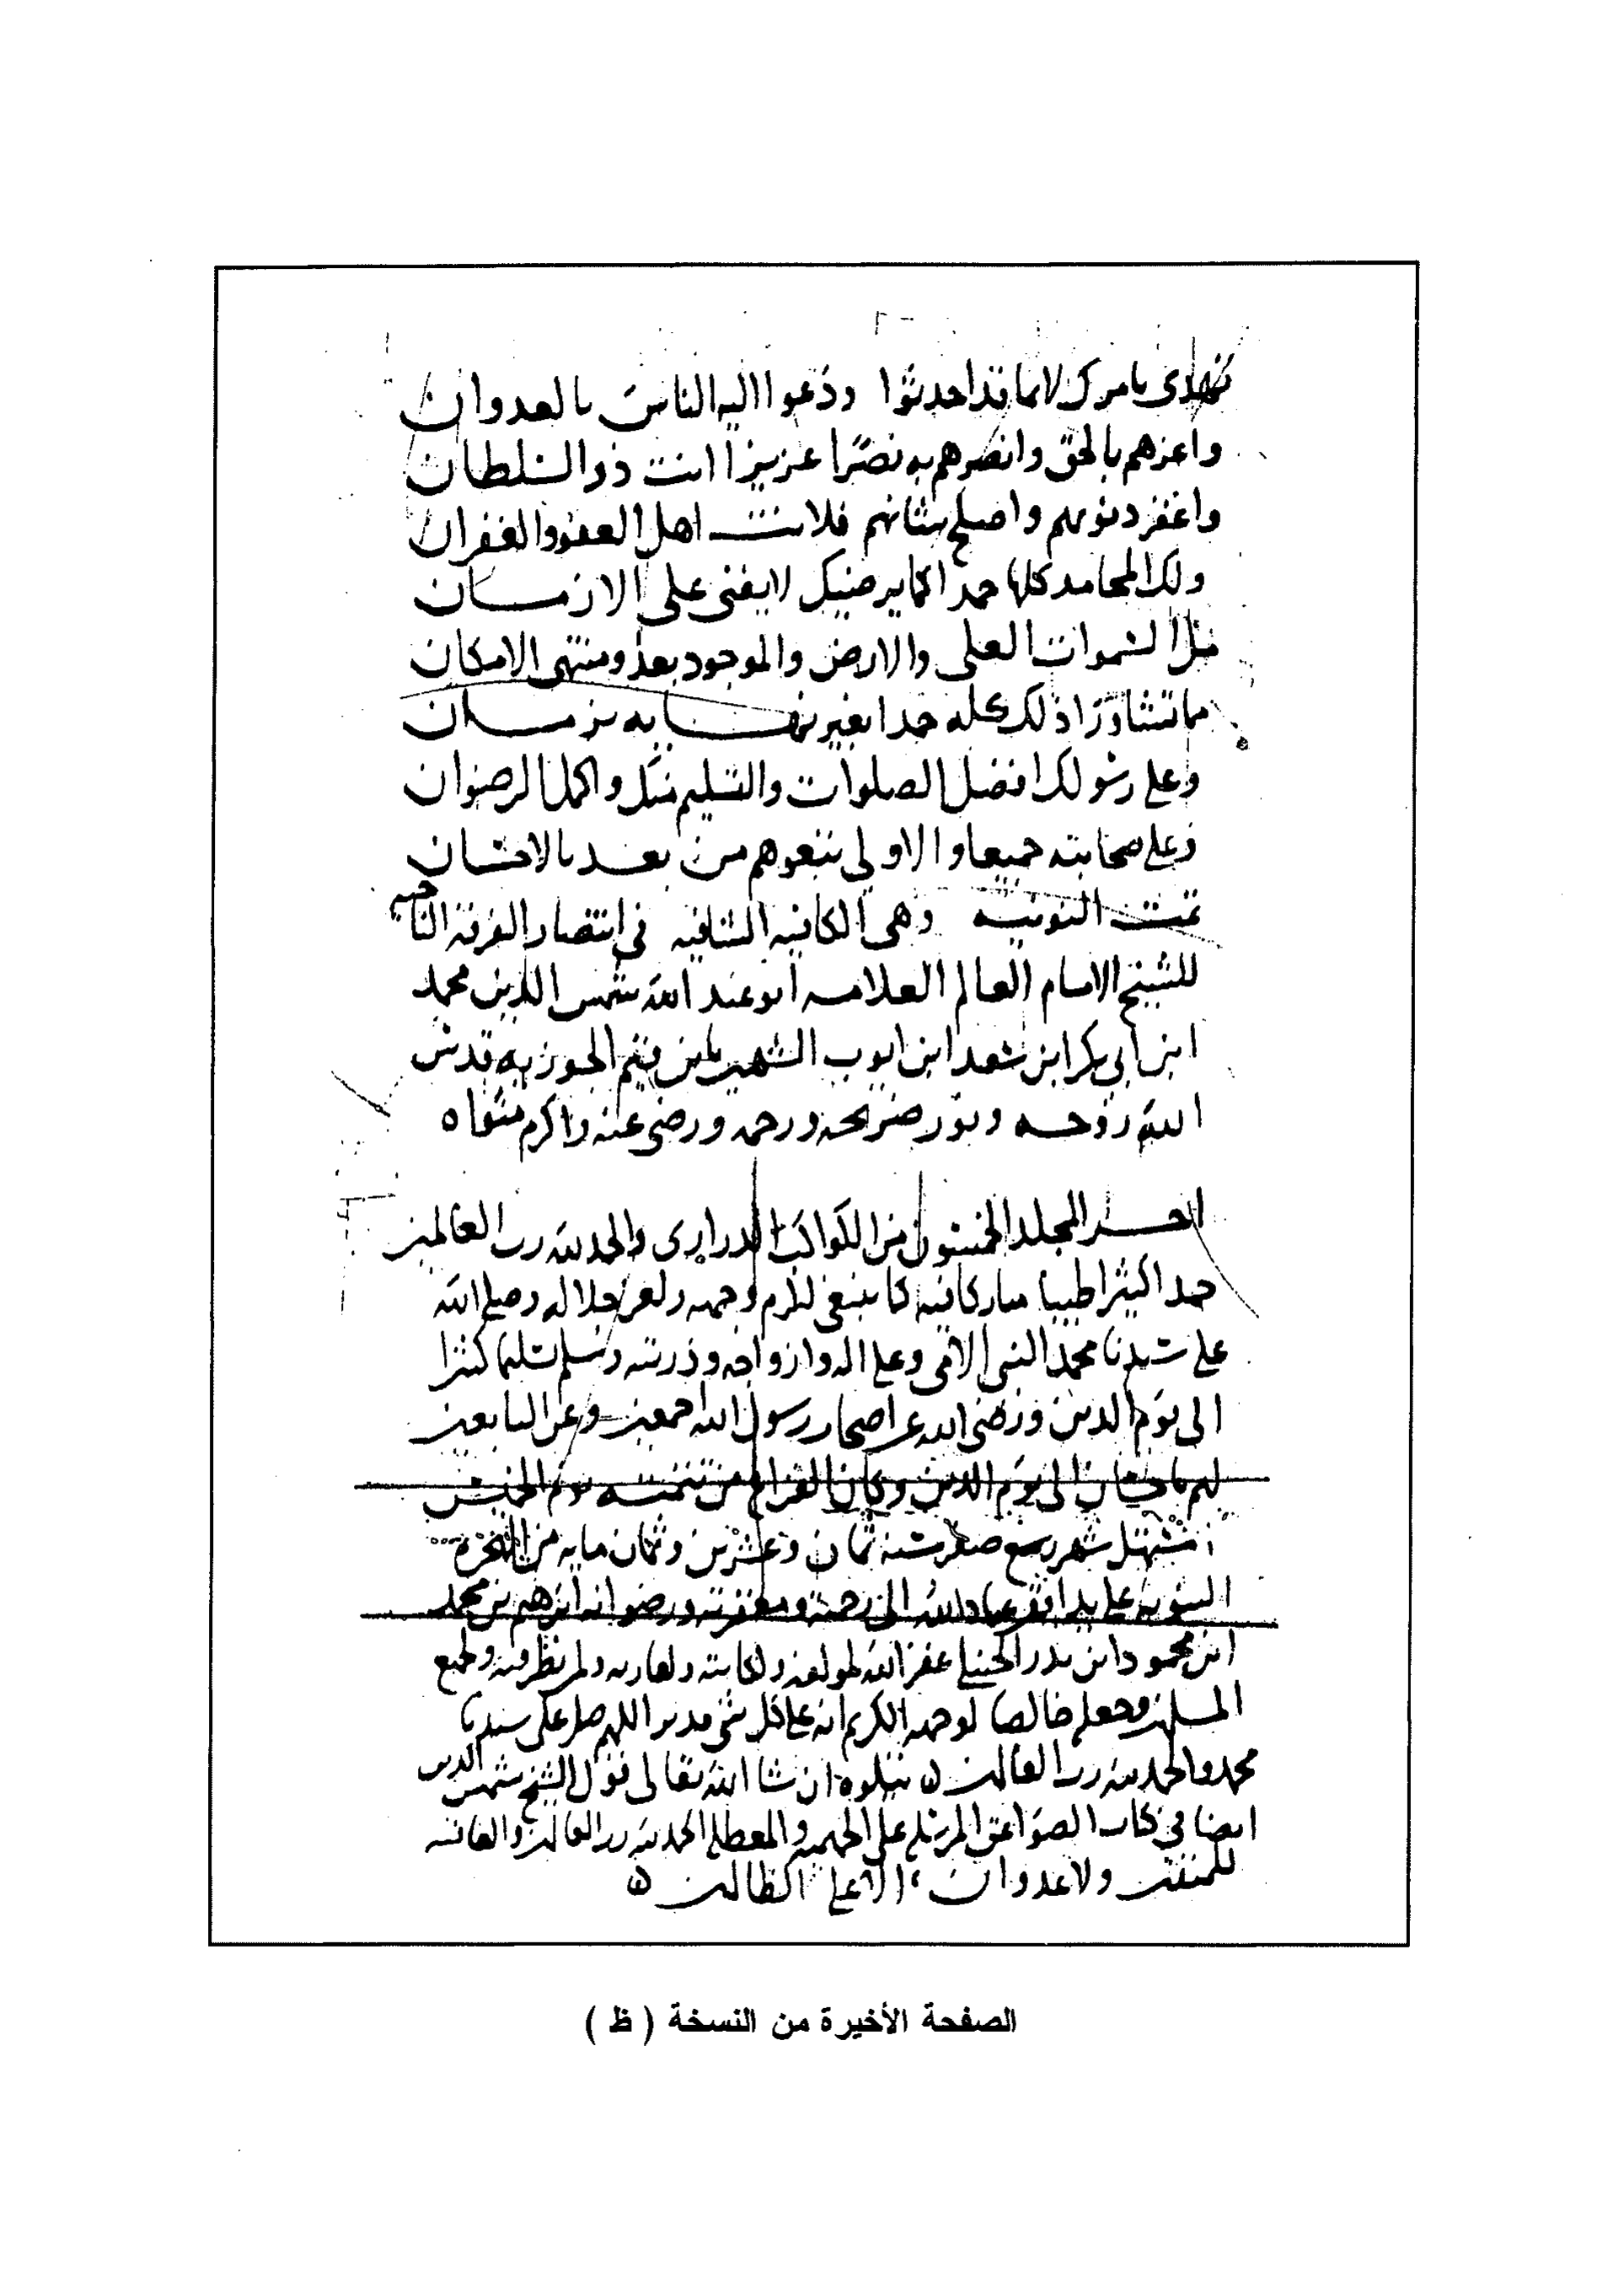 تهدي بامرك لا بما قد احدثوا ودعوا اليه الناس بالعدوان
واعزهم بالحق وانصرهم به نصرا عزيزا انت ذو السلطان
واغفر ذنوبهم واصلح شانهم فلانت اهل العفو والغفران
ولك المحامد كلها حمدا كما يرضيك لا يفنى على الازمان
مل السموات العلى والارض والموجود بعد ومنتهى الامكان
مما تشا ورا ذلك كله حمدا بغير نهاية بزمان
وعلى رسولك افضل الصلوات والتسليم منك واكمل الرضوان
وعلى صحابته جميعا والاولى تبعوهم من بعد بالاحسان
تمت النونية وهي الكافية الشافية في انتصار الفرقة الناجيه
للشيخ الامام العالم العلامه ابو عبد الله شمس الدين محمد
ابن ابي بكر ابن سعد ابن ايوب الشهير بابن قيم الجوزيه قدس
الله روحه ونور ضريحه ورحمه ورضي عنه واكرم مثواه
اخر المجلد الخمسون من الكواكب الدراري والحمد لله رب العالمين
حمدا كثيرا طيبا مباركا فيه كما ينبغي لكرم وجهه ولعز جلاله وصلى الله
على سيدنا محمد النبي الامي وعلى اله وازواجه وذريته وسلم تسليما كثيرا
الى يوم الدين ورضي الله عن اصحاب رسول الله اجمعين وعن التابعين
لهم باحسان الى يوم الدين وكان الفراغ من تتمته يوم الخميس
مستهل شهر صفر سنة ثمان وعشرين وثمان مايه من الهجرة
النبوية على يد افقر عباد الله الى رحمته ومغفرته ورضوانه ابرهيم بن محمد
ابن محمود ابن بدر الحنبلي غفر الله لمولفه ولكاتبه ولقاريه ولمن نظر فيه ولجميع
المسلمين وجعله خالصا لوجهه الكريم انه على كل شي قدير اللهم صل على سيدنا
محمد والحمد لله رب العالمين يتلوه ان شا الله تعالى قول الشيخ شمس الدين
ايضا في كتاب الصواعق المرسله على الجهميه والمعطله الحمد لله رب العالمين والعاقبه
للمتقين ولا عدوان الا على الظالمين
الصفحة الأخيرة من النسخة ( ظ )